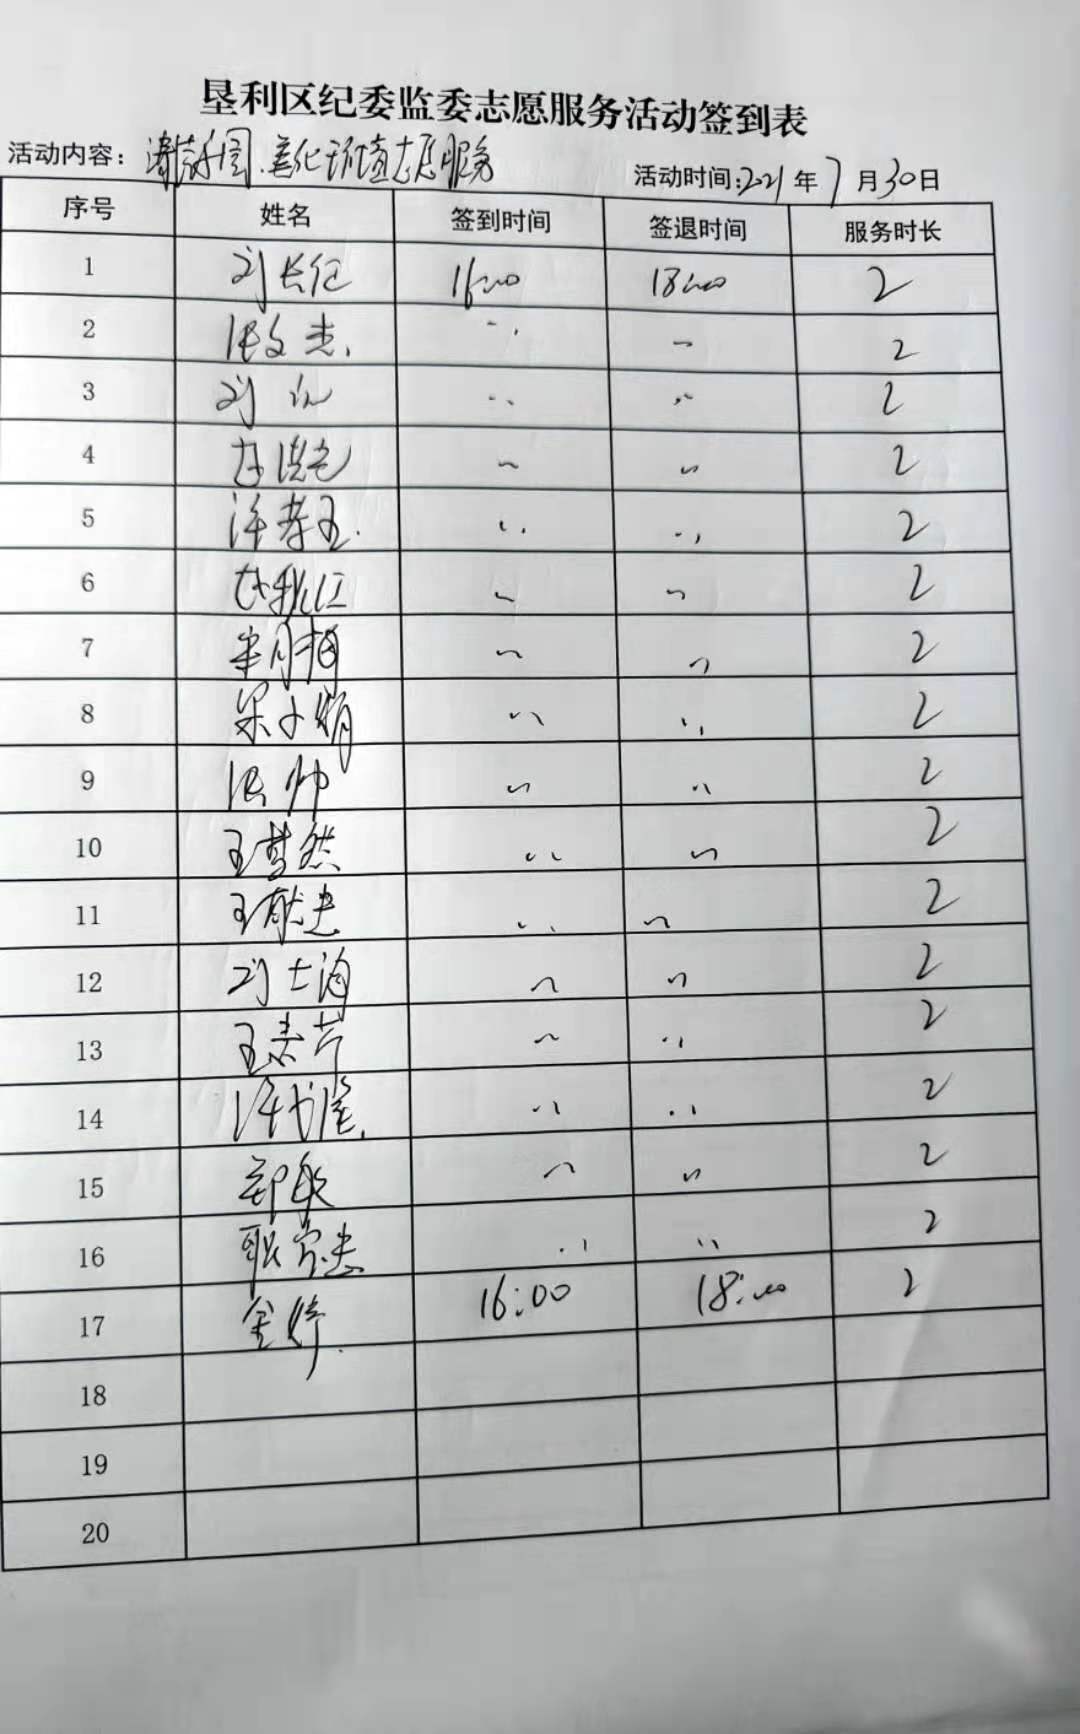 垦利区纪委监委志愿服务活动签到表
活动内容：清 家园.美化环境志愿服务
活动时间:2021年7月30日
序号 姓名 签到时间 签退时间 服务时长
1 刘长征 16:00 18:00 2
2 张文杰. 〃 〃 2
3 刘 〃 〃 2
4 〃 〃 2
5 〃 〃 2
6 〃 〃 2
7 〃 〃 2
8 梁小娟 〃 〃 2
9 张帅 〃 〃 2
10 王梦然 〃 〃 2
11 王献忠 〃 〃 2
12 刘士海 〃 〃 2
13 王素芹 〃 〃 2
14 〃 〃 2
15 郭敏 〃 〃 2
16 〃 〃 2
17 金婷. 16:00 18:00 2
18
19
20